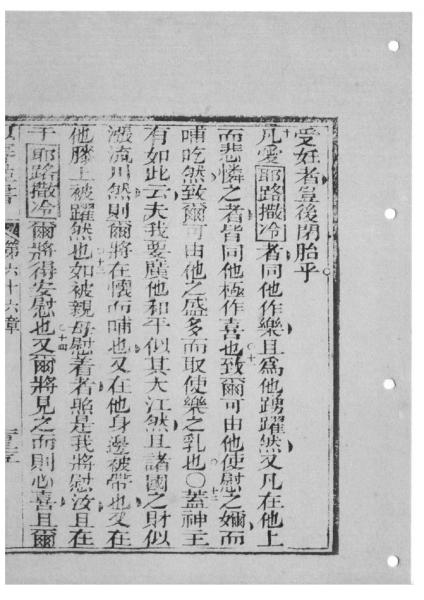 受妊者豈後閉胎乎
凡愛耶路撒冷者同他作樂且爲他踴躍然又凡在他上
而悲憐之者皆同他極作喜也致爾可由他使慰之嬭而
哺吃然致爾可由他之盛多而取使樂之乳也〇蓋神主
有如此云夫我要廣他和平似其大江然且諸國之財似
漲流川然則爾將在懷而哺也又在他身邊被帶也又在
他膝上被躍然也如被親母慰着者照是我將慰汝且在
于耶路撒冷爾將得安慰也又爾將見之而則心喜且爾
第六十六章